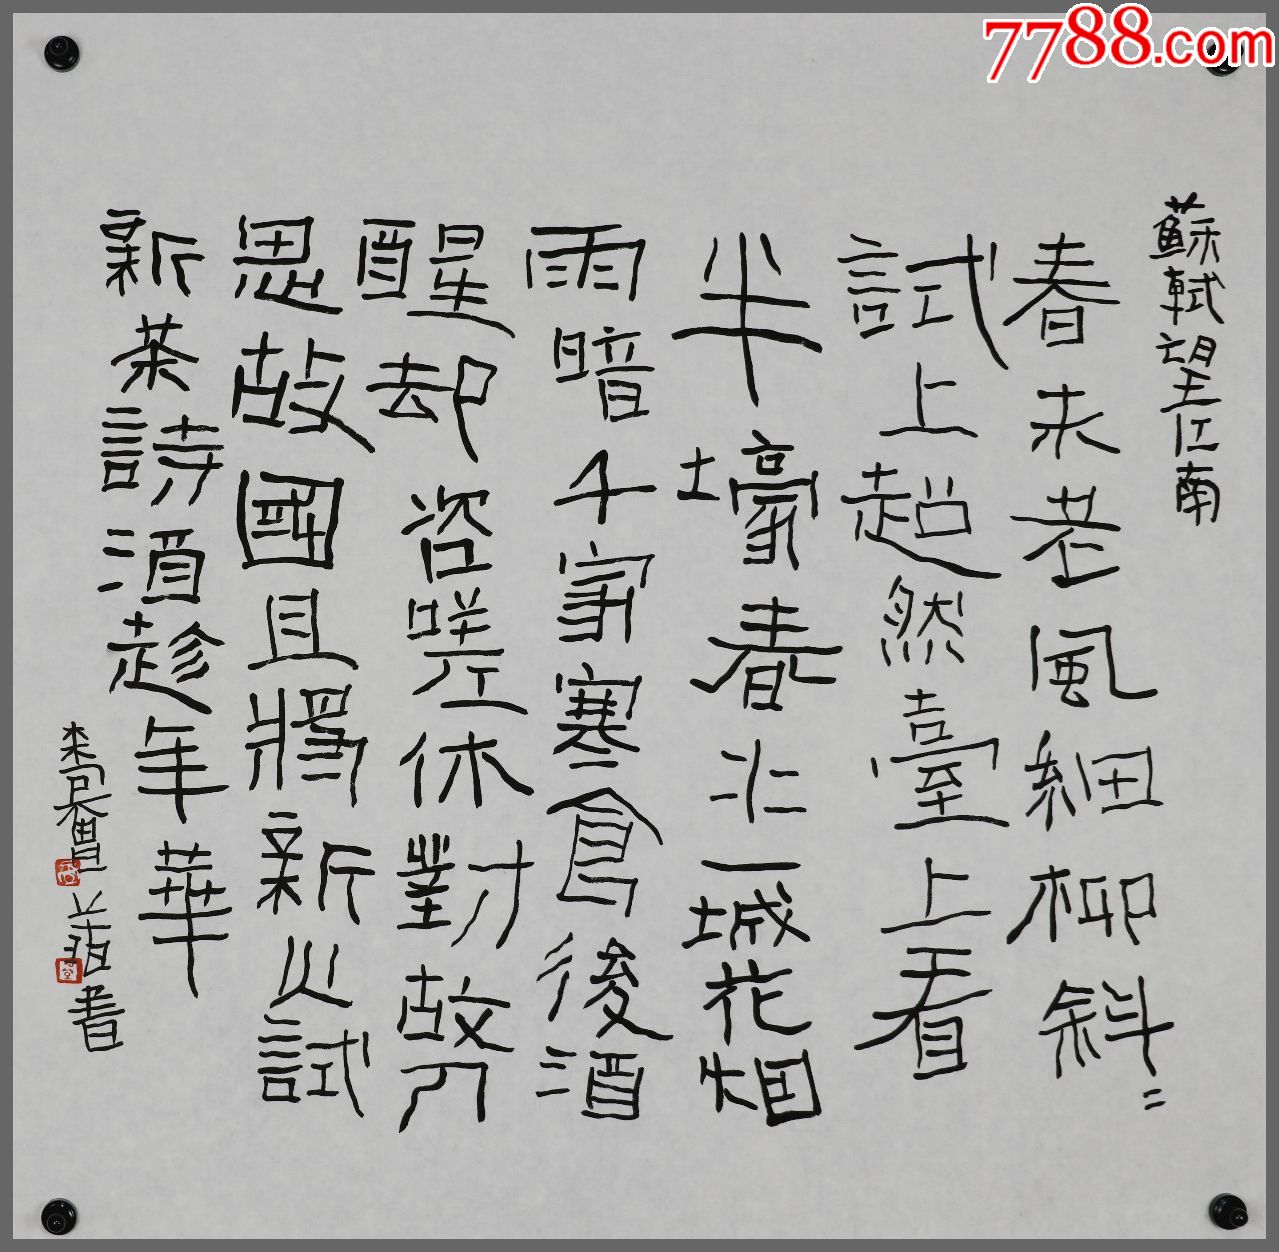 7788.com
蘇軾望江南
春未老風細柳斜〻
試上超然臺上看
半壕春水一城花烟
雨暗千家寒食後酒
醒却咨嗟休對故人
思故國且將新火試
新茶詩酒趁年華
書